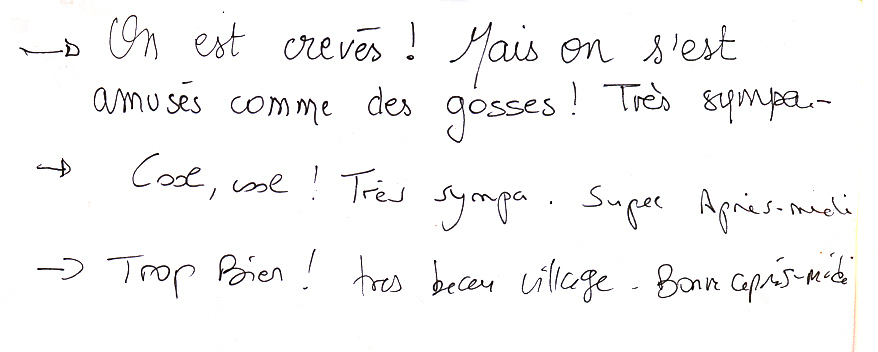 → On est crevés ! Mais on s'est
amusés comme des gosses ! Très sympa-
→ Cool, cool ! Très sympa. Super Après-midi
→ Trop Bien ! très beau village. Bonne après-midi